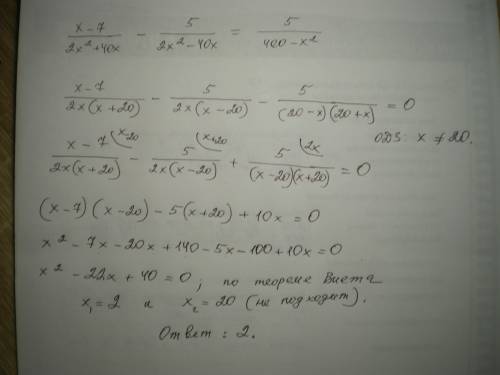 (x-7)/(2x²+40x) - 5/(2x²-40x) = 5/(400-x²)
(x-7)/(2x(x+20)) - 5/(2x(x-20)) - 5/((20-x)(20+x)) = 0
ОДЗ: x ≠ 20.
(x-7)\x-20/(2x(x+20)) - 5\x+20/(2x(x-20)) + 5\2x/((x-20)(x+20)) = 0
(x-7)(x-20) - 5(x+20) + 10x = 0
x² - 7x - 20x + 140 - 5x - 100 + 10x = 0
x² - 22x + 40 = 0; по теореме Виета
x₁ = 2 и x₂ = 20 (не подходит).
Ответ: 2.